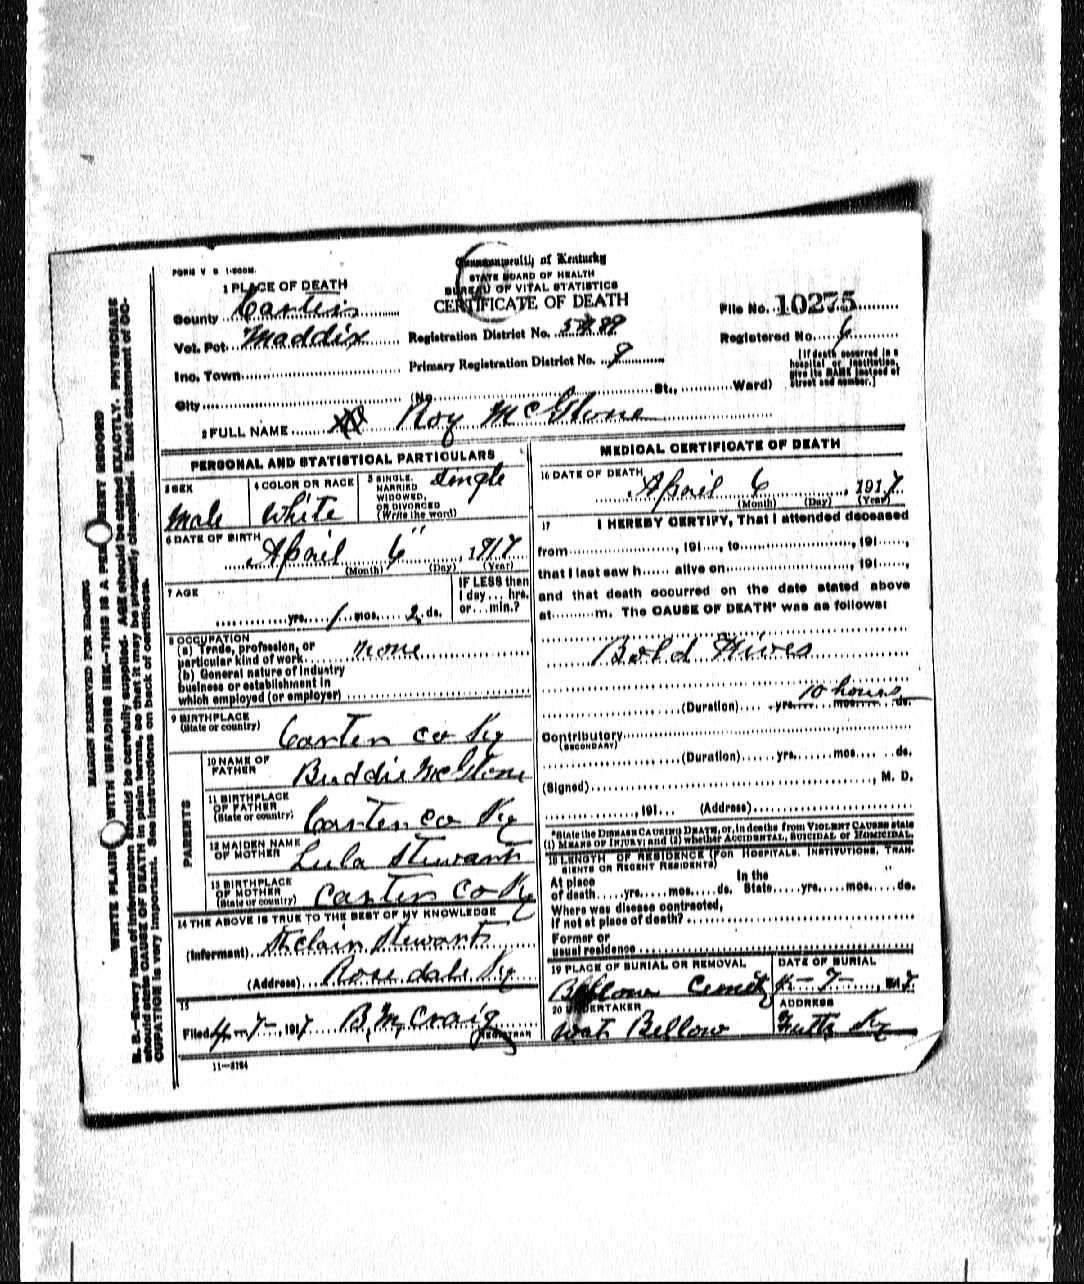 FORM V S 1-500M.
Commonwealth of Kentucky
STATE BOARD OF HEALTH
BUREAU OF VITAL STATISTICS
CERTIFICATE OF DEATH
1 PLACE OF DEATH
County Carter
Vot. Pct. Maddix
Inc. Town
City
Registration District No. 89
Primary Registration District No. 8
(No. St., Ward)
File No. 10275
Registered No. 6
[If death occurred in a
hospital or institution,
give its NAME instead of
street and number.]
2 FULL NAME Roy McGlone
PERSONAL AND STATISTICAL PARTICULARS
3 SEX
Male
4 COLOR OR RACE
White
5 SINGLE,
MARRIED
WIDOWED,
OR DIVORCED
(Write the word)
Single
6 DATE OF BIRTH
April 6", 1917
(Month) (Day) (Year)
7 AGE
yrs. 1 mos. 2 ds.
IF LESS than
1 day... hrs.
or... min.?
8 OCCUPATION
(a) Trade, profession, or
particular kind of work none
(b) General nature of industry
business or establishment in
which employed (or employer)
9 BIRTHPLACE
(State or country)
Carter co Ky
PARENTS
10 NAME OF
FATHER
Buddie McGlone
11 BIRTHPLACE
OF FATHER
(State or country)
Carter co Ky
12 MAIDEN NAME
OF MOTHER
Lula Stewart
13 BIRTHPLACE
OF MOTHER
(State or country)
Carter Co Ky
14 THE ABOVE IS TRUE TO THE BEST OF MY KNOWLEDGE
(Informant) St clair Stewart
(Address) Rosedale Ky
15
Filed 4-7-, 1917 B. M. Craig
REGISTRAR
11-3184
MEDICAL CERTIFICATE OF DEATH
16 DATE OF DEATH
April 6, 1917
(Month) (Day) (Year)
17 I HEREBY CERTIFY, That I attended deceased
from , 191 , to , 191 ,
that I last saw h alive on , 191 ,
and that death occurred on the date stated above
at m. The CAUSE OF DEATH* was as follows:
Bold Hives
10 hours
(Duration) yrs. mos. ds.
Contributory
(SECONDARY)
(Duration) yrs. mos. ds.
(Signed) , M. D.
, 191 (Address)
*State the DISEASE CAUSING DEATH, or, in deaths from VIOLENT CAUSES state
(1) MEANS OF INJURY; and (2) whether ACCIDENTAL, SUICIDAL, or HOMICIDAL.
18 LENGTH OF RESIDENCE (FOR HOSPITALS, INSTITUTIONS, TRAN-
SIENTS OR RECENT RESIDENTS)
At place
of death yrs. mos. ds.
In the
State yrs. mos. ds.
Where was disease contracted,
If not at place of death?
Former or
usual residence
19 PLACE OF BURIAL OR REMOVAL
DATE OF BURIAL
4-7-, 1917
20 UNDERTAKER
Bellow
ADDRESS
Ky
MARGIN RESERVED FOR BINDING
WRITE PLAINLY WITH UNFADING INK—THIS IS A PERMANENT RECORD
N. B.—Every item of information should be carefully supplied. AGE should be stated EXACTLY. PHYSICIANS
should state CAUSE OF DEATH in plain terms, so that it may be properly classified. Exact statement of OC-
CUPATION is very important. See instructions on back of certificate.